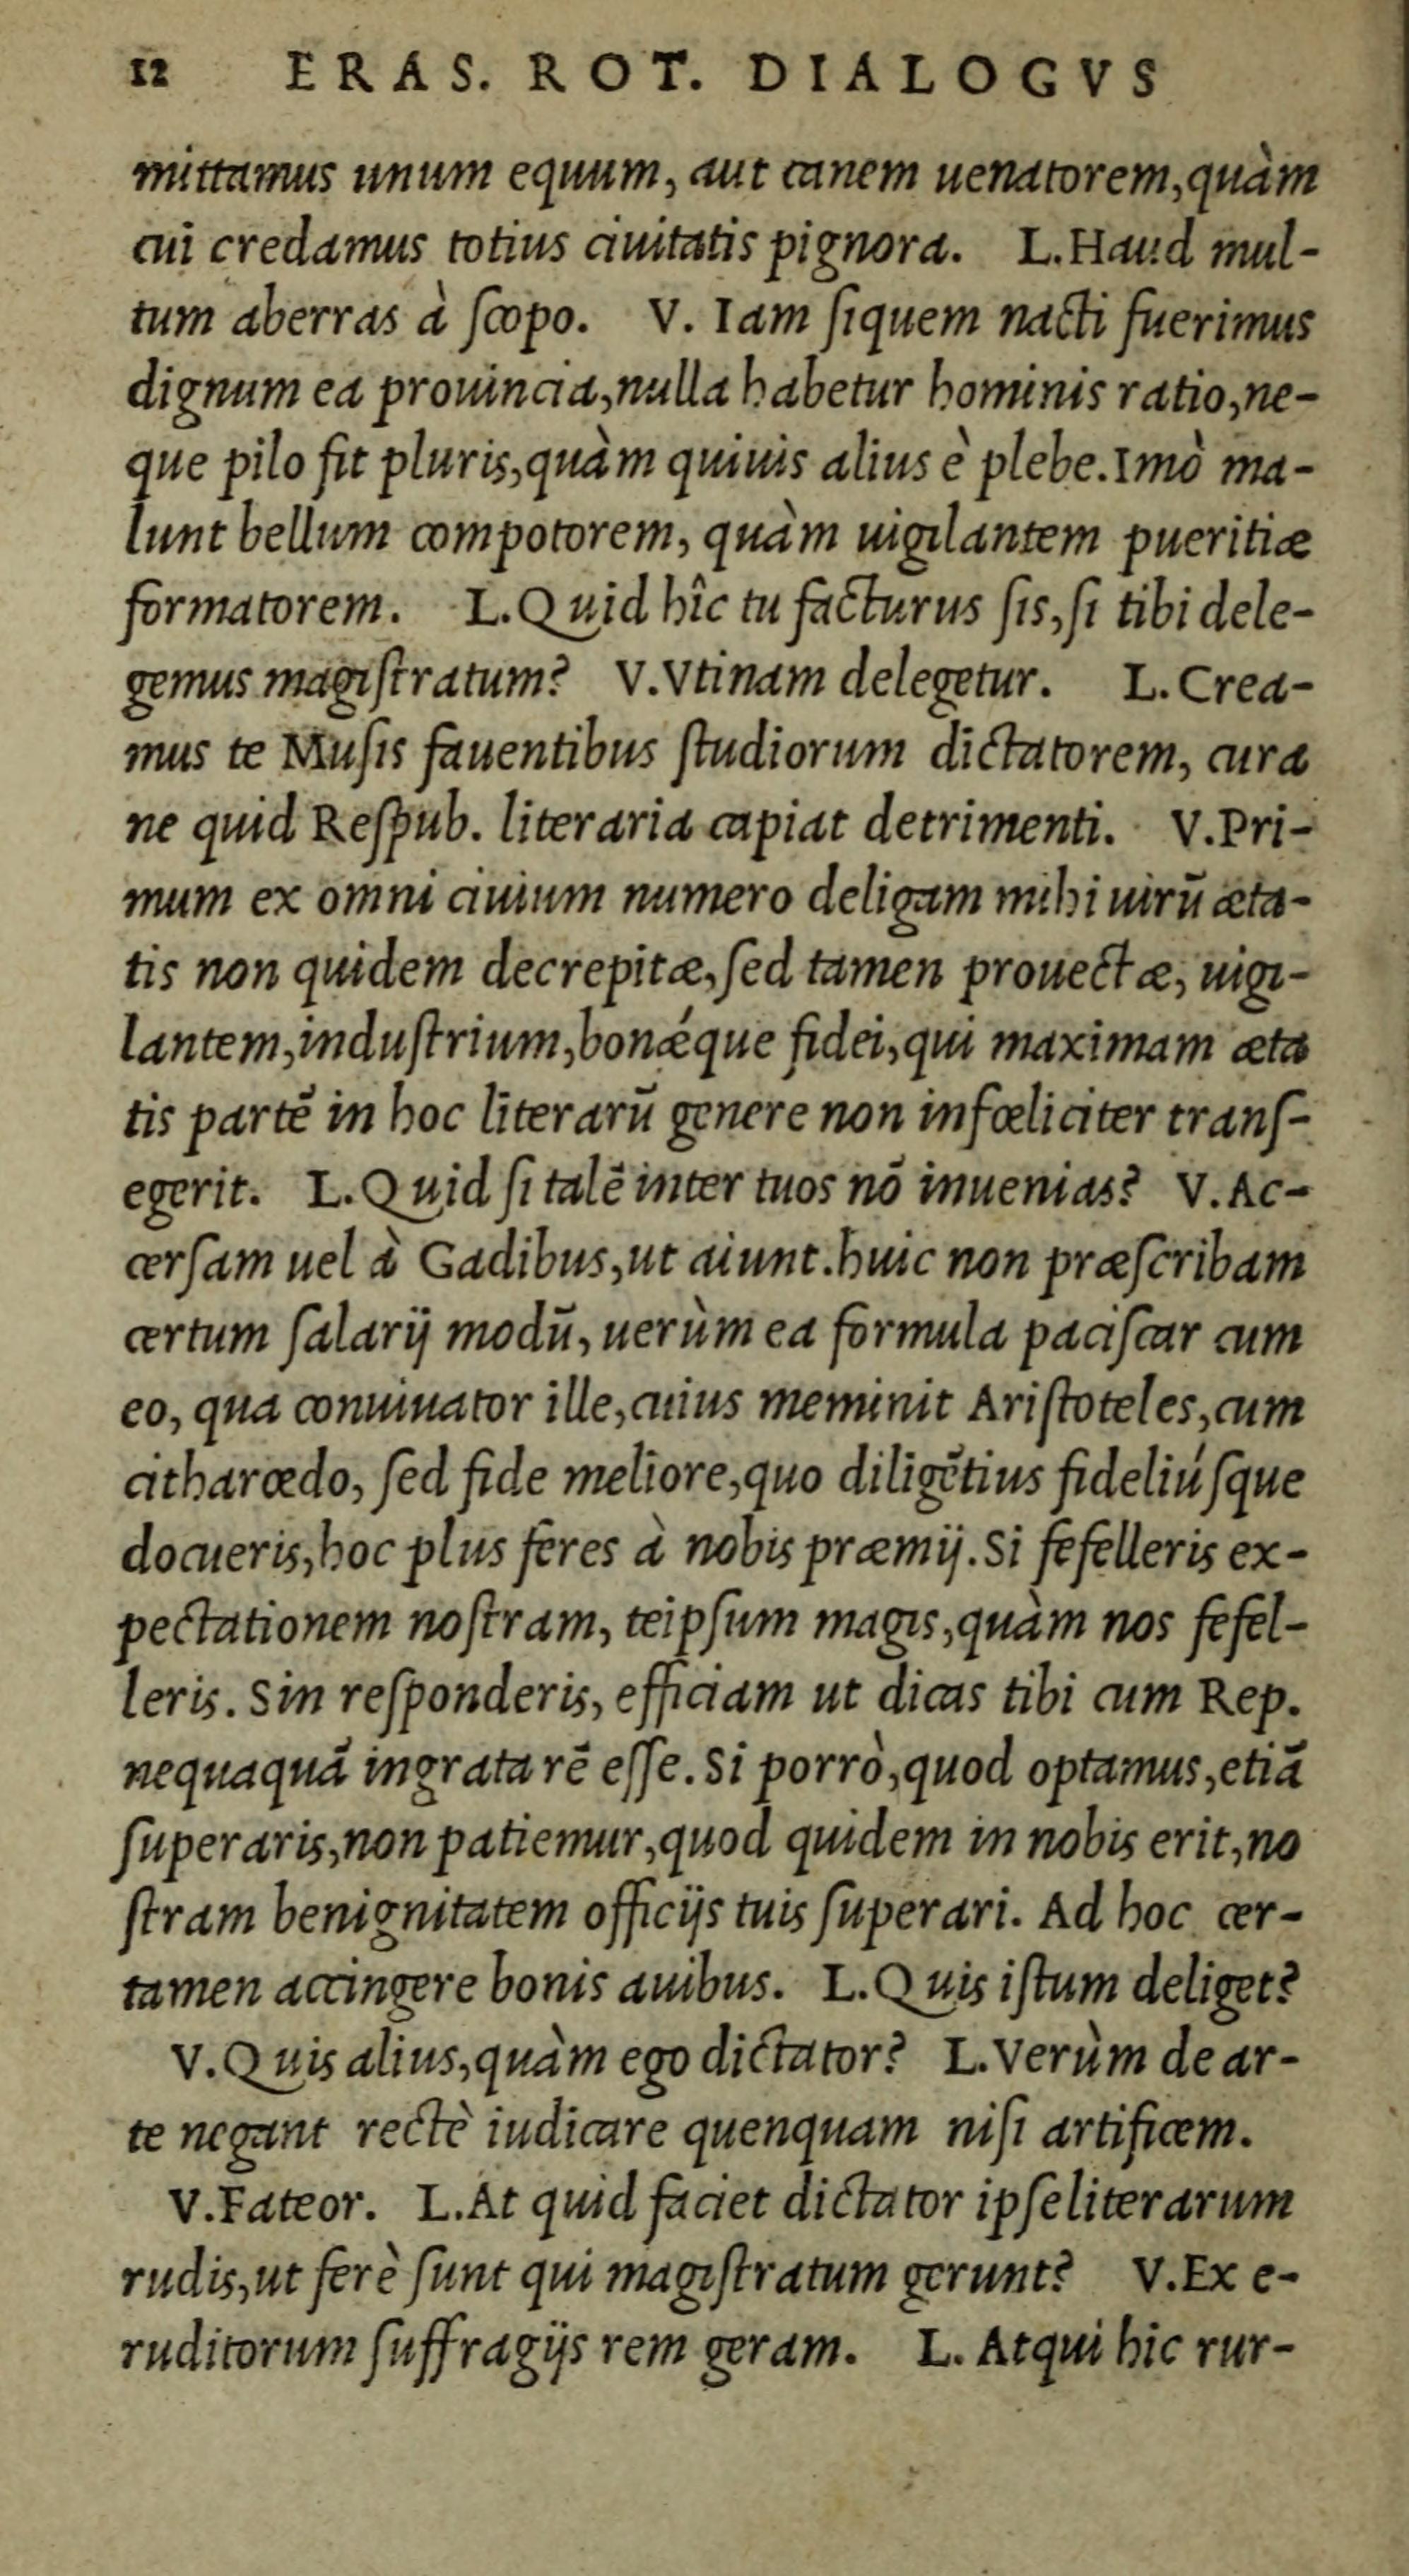 12 ERAS. ROT. DIALOGVS
mittamus unum equum, aut canem uenatorem,quàm
cui credamus totius ciuitatis pignora. L.Haud mul-
tum aberras à ſcopo. V. Iam ſiquem nacti fuerimus
dignum ea prouincia,nulla habetur hominis ratio,ne-
que pilo fit pluris,quàm quiuis alius è plebe.Imò ma-
lunt bellum compotorem, quàm uigilantem pueritiæ
formatorem. L.Quid hîc tu facturus ſis,ſi tibi dele-
gemus magiſtratum? V.Vtinam delegetur. L.Crea-
mus te Muſis fauentibus ſtudiorum dictatorem, cura
ne quid Reſpub. literaria capiat detrimenti. V.Pri-
mum ex omni ciuium numero deligam mihi uirū æta-
tis non quidem decrepitæ,ſed tamen prouectæ, uigi-
lantem,induſtrium,bonǽque fidei,qui maximam æta
tis partē in hoc literarū genere non infœliciter tranſ-
egerit. L.Quid ſi talē inter tuos nō inuenias? V.Ac-
cerſam uel à Gadibus,ut aiunt.huic non præſcribam
certum ſalarij modū, uerùm ea formula paciſcar cum
eo, qua conuiuator ille,cuius meminit Ariſtoteles,cum
citharœdo, ſed fide meliore,quo diligētius fideliúſque
docueris,hoc plus feres à nobis præmij.Si fefelleris ex-
pectationem noſtram, teipſum magis,quàm nos fefel-
leris.Sin reſponderis, efficiam ut dicas tibi cum Rep.
nequaquā ingrata rē eſſe.Si porrò,quod optamus,etiā
ſuperaris,non patiemur,quod quidem in nobis erit,no
ſtram benignitatem officijs tuis ſuperari. Ad hoc cer-
tamen accingere bonis auibus. L.Quis iſtum deliget?
V.Quis alius,quàm ego dictator? L.Verùm de ar-
te negant rectè iudicare quenquam niſi artificem.
V.Fateor. L.At quid faciet dictator ipſe literarum
rudis,ut ferè ſunt qui magiſtratum gerunt? V.Ex e-
ruditorum ſuffragijs rem geram. L. Atqui hic rur-